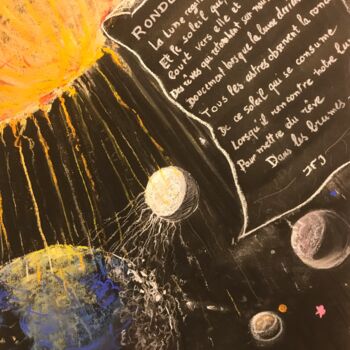 RONDO
La Lune
Et le soleil qui
court vers elle et
Des rêves qui retombent sur
Doucement lorsque la lune
Tous les astres observent la
De ce soleil qui se consume
Lorsqu'il rencontre notre
Pour mettre du rêve
Dans les brumes
JFJ